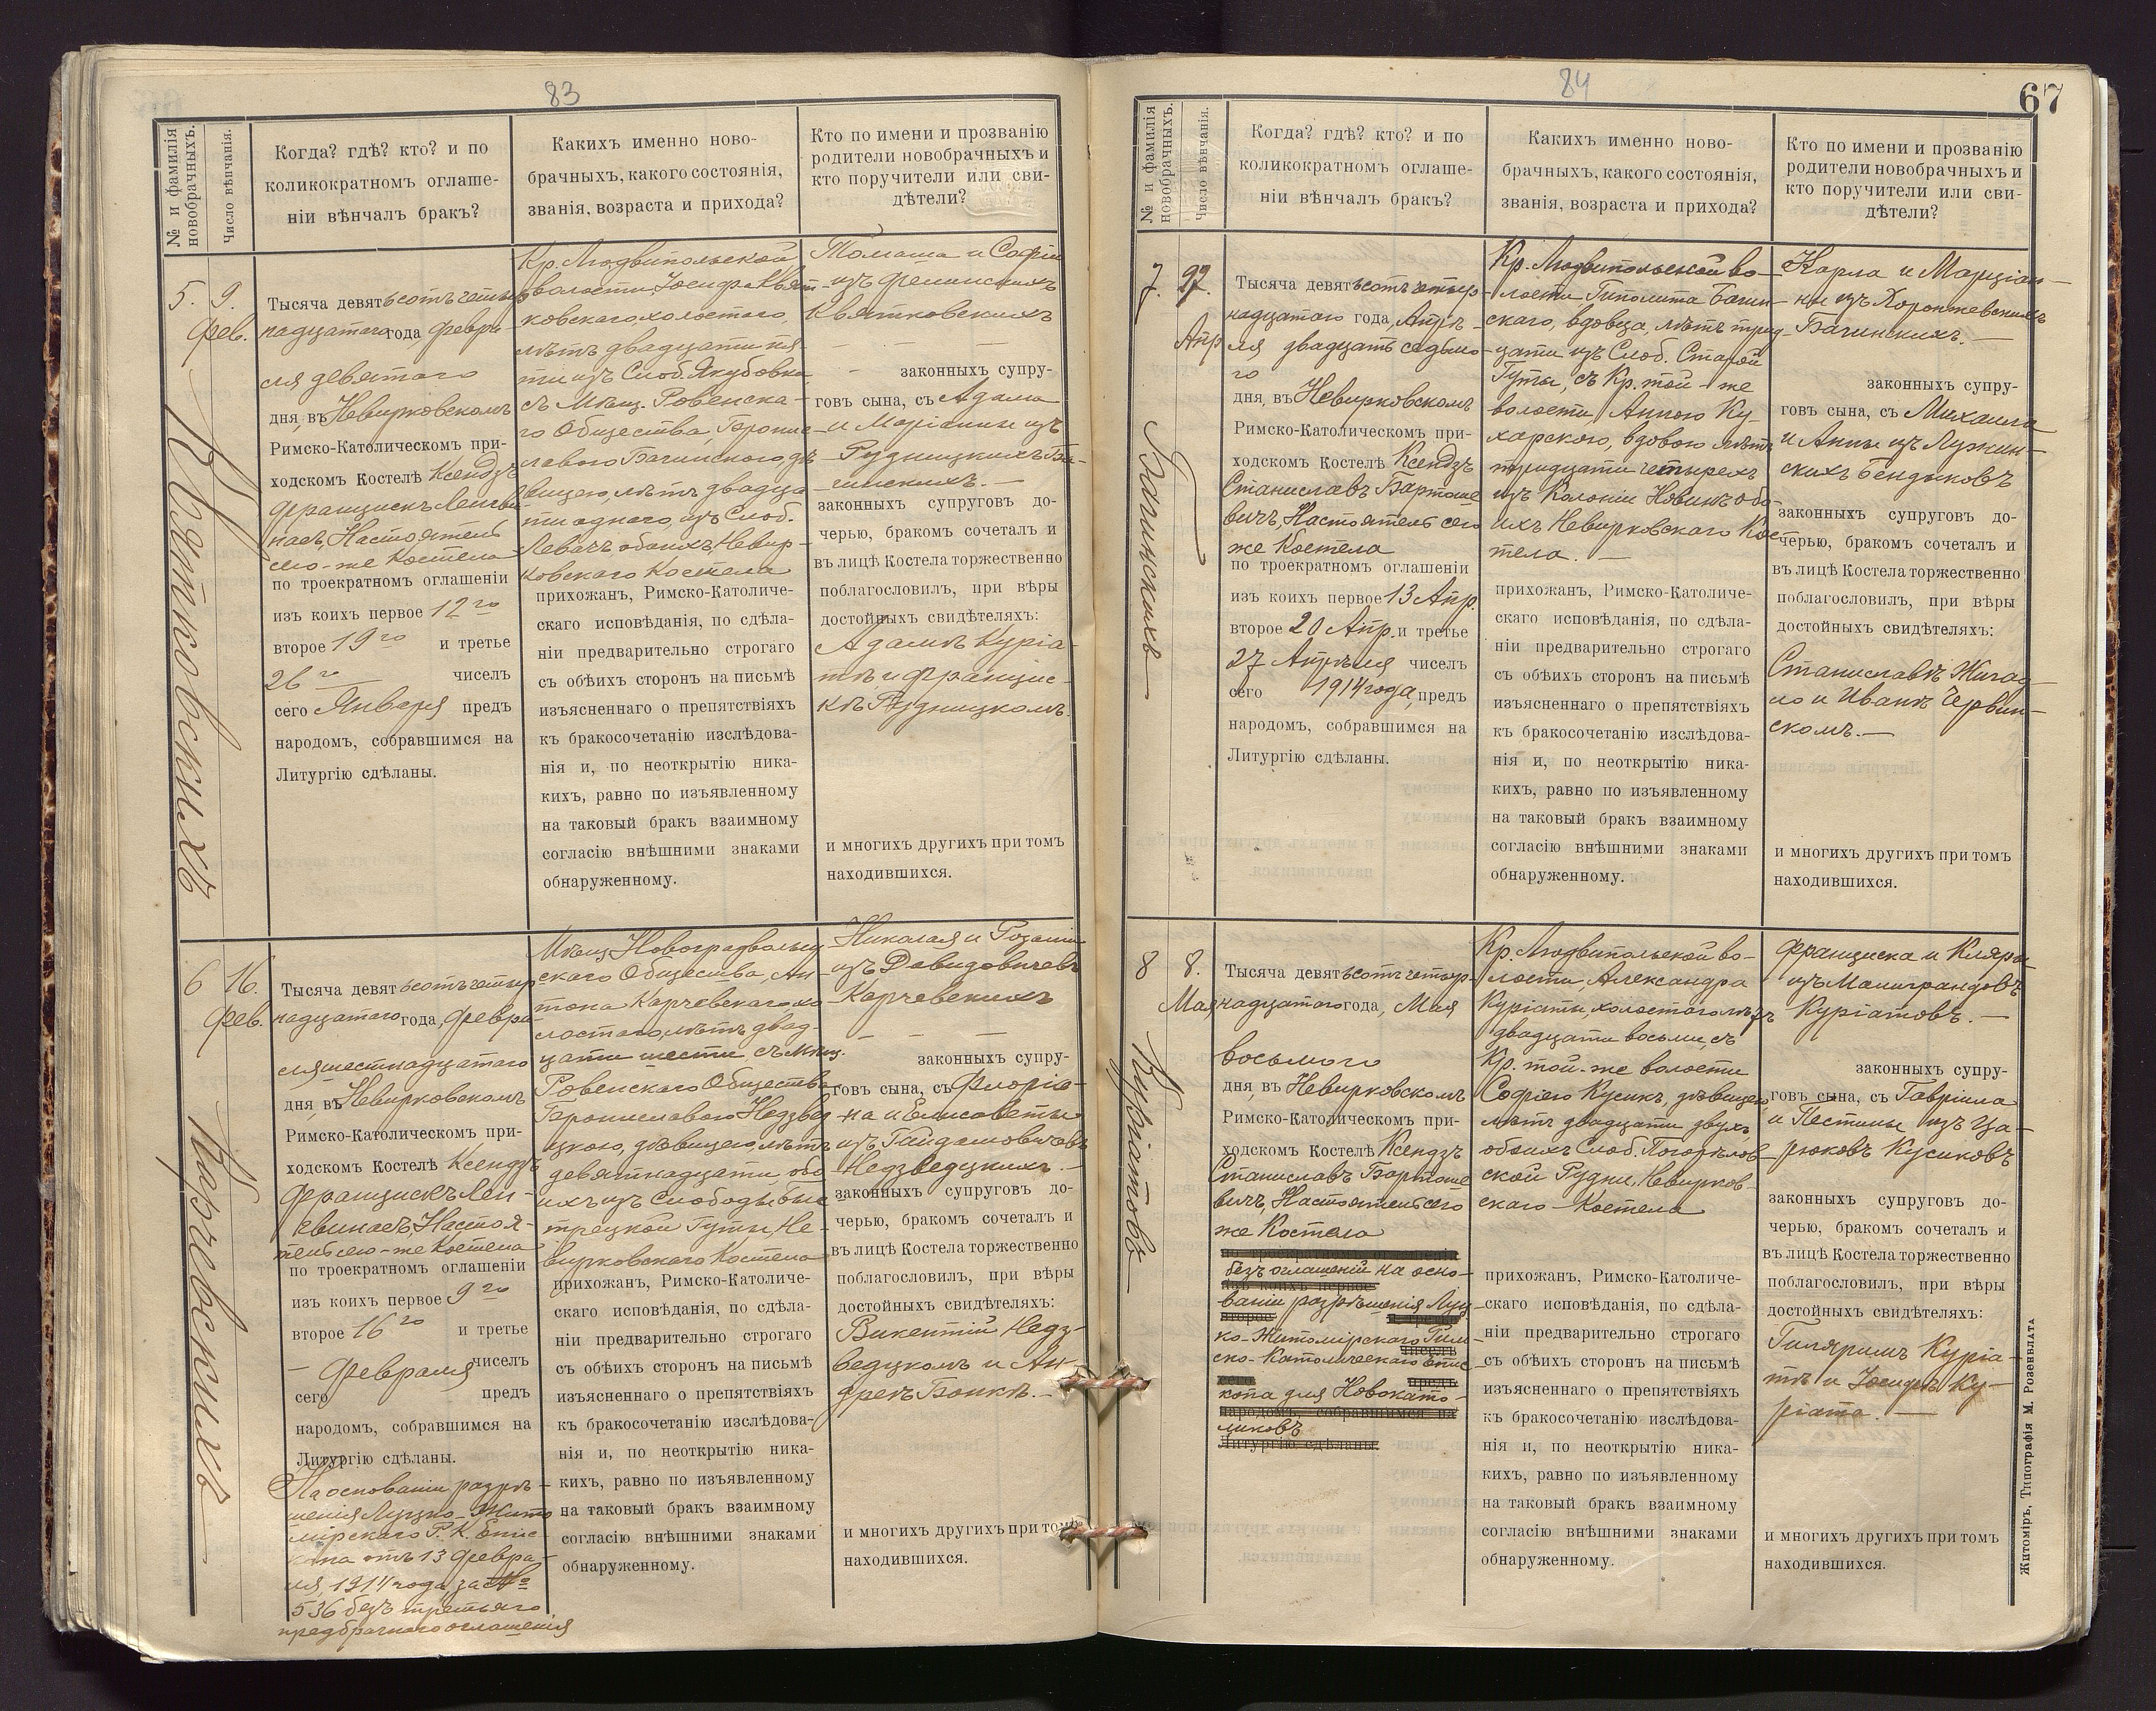 83
№ и фамилія новобрачныхъ.
Число вѣнчанія.
Когда? гдѣ? кто? и по
коликократномъ оглаше-
ніи вѣнчалъ бракъ?
Какихъ именно ново-
брачныхъ, какого состоянія,
званія, возраста и прихода?
Кто по имени и прозванію
родители новобрачныхъ и
кто поручители или сви-
дѣтели?
5.
9.
Фев.
Квятковскихъ
Тысяча девятьсотъ четыр-
надцатаго года Февра-
ля девятаго
дня, въ Невирковскомъ
Римско-Католическомъ при-
ходскомъ Костелѣ Ксендзъ
Францискъ
Настоятель
сего-же Костела
по троекратномъ оглашеніи
изъ коихъ первое 12го
второе 19го и третье
26го чиселъ
сего Января предъ
народомъ, собравшимся на
Литургію сдѣланы.
Кр. Людвипольской
волости, Іосифа Квят-
ковскаго, холостого,
лѣтъ двадцати пя-
ти изъ Слоб. Якубовка,
съ Мѣщ. Ровенска-
го Общества, Бронис-
лавою Багинского, дѣ-
вицею, лѣтъ двадца-
ти одного, изъ Слоб.
Левачъ обоихъ, Невир-
ковскаго Костела
прихожанъ, Римско-Католиче-
скаго исповѣданія, по сдѣла-
ніи предварительно строгаго
съ обѣихъ сторонъ на письмѣ
изъясненнаго о препятствіяхъ
къ бракосочетанію изслѣдова-
нія и, по неоткрытію ника-
кихъ, равно по изъявленному
на таковый бракъ взаимному
согласію внѣшними знаками
обнаруженному.
Томаша и Софіи
изъ
Квятковскихъ
законныхъ супру-
говъ сына, съ Адама
и Маріанны изъ
Рудницкихъ Ба-
гинскихъ.
законныхъ супруговъ до-
черью, бракомъ сочеталъ и
въ лицѣ Костела торжественно
поблагословилъ, при вѣры
достойныхъ свидѣтеляхъ:
Адамѣ Куріа-
тѣ и Францис-
кѣ Рудницкомъ.
и многихъ другихъ при томъ
находившихся.
6
16.
Фев.
Карчевскихъ
Тысяча девятьсотъ четыр-
надцатаго года, Февра-
ля шестнадцатаго
дня, въ Невирковскомъ
Римско-Католическомъ при-
ходскомъ Костелѣ Ксендзъ
Францискъ
Настоя-
тель сего-же Костела
по троекратномъ оглашеніи
изъ коихъ первое 9го
второе 16го и третье
— Февраля чиселъ
сего предъ
народомъ, собравшимся на
Литургію сдѣланы.
На основаніи разрѣ-
шенія Луцко-Жито
мірскаго Р. К. Епис-
копа отъ 13 Февра-
ля, 1914 года, за №
536 безъ третьяго
предбрачнаго оглашенія
Мѣщ. Новоградволын-
скаго Общества, Ан-
тона Карчевскаго, хо-
лостаго, лѣтъ двад-
цати шести, съ Мѣщ.
Ровенскаго Общества
Брониславою Недзвед-
цкою, дѣвицею, лѣтъ
девятнадцати, обо-
ихъ изъ Слободы Быс-
трецкой Гуты, Не-
вирковскаго Костела
прихожанъ, Римско-Католиче-
скаго исповѣданія, по сдѣла-
ніи предварительно строгаго
съ обѣихъ сторонъ на письмѣ
изъясненнаго о препятствіяхъ
къ бракосочетанію изслѣдова-
нія и, по неоткрытію ника-
кихъ, равно по изъявленному
на таковый бракъ взаимному
согласію внѣшними знаками
обнаруженному.
Николая и Розаліи
изъ Давидовичевъ
Карчевскихъ
законныхъ супру-
говъ сына, съ Флоріа-
на и Елисаветы
изъ Гайдамовичовъ
Недзведцкихъ.
законныхъ супруговъ до-
черью, бракомъ сочеталъ и
въ лицѣ Костела торжественно
поблагословилъ, при вѣры
достойныхъ свидѣтеляхъ:
Викентій Недз-
ведцкомъ и Ан-
дреѣ Бонкѣ.
и многихъ другихъ при томъ
находившихся.
84
67
№ и фамилія новобрачныхъ.
Число вѣнчанія.
Когда? гдѣ? кто? и по
коликократномъ оглаше-
ніи вѣнчалъ бракъ?
Какихъ именно ново-
брачныхъ, какого состоянія,
званія, возраста и прихода?
Кто по имени и прозванію
родители новобрачныхъ и
кто поручители или сви-
дѣтели?
7.
27.
Апр.
Багинскихъ
Тысяча девятьсотъ четыр-
надцатаго года, Апрѣ-
ля двадцать седьмо-
го
дня, въ Невирковскомъ
Римско-Католическомъ при-
ходскомъ Костелѣ Ксендзъ
Станиславъ Бартоше
вичъ, Настоятель сего
же Костела
по троекратномъ оглашеніи
изъ коихъ первое 13 Апр.
второе 20 Апр. и третье
27 Апрѣля чиселъ
сего 1914 года, предъ
народомъ, собравшимся на
Литургію сдѣланы.
Кр. Людвипольской во-
лости Гиполита Багин-
скаго, вдовца, лѣтъ трид-
цати изъ Слоб. Старой
Гуты, съ Кр. той-же
волости Анною Ку-
харского, вдовою лѣтъ
тридцати четырехъ
изъ Колоніи Новинъ обо-
ихъ Невирковскаго Кос-
тела.
прихожанъ, Римско-Католиче-
скаго исповѣданія, по сдѣла-
ніи предварительно строгаго
съ обѣихъ сторонъ на письмѣ
изъясненнаго о препятствіяхъ
къ бракосочетанію изслѣдова-
нія и, по неоткрытію ника-
кихъ, равно по изъявленному
на таковый бракъ взаимному
согласію внѣшними знаками
обнаруженному.
Карла и Марціан-
ны изъ Хоронжевскихъ
Багинскихъ.
законныхъ супру-
говъ сына, съ Михаила
и Анны изъ Лужин-
скихъ Бендыковъ
законныхъ супруговъ до-
черью, бракомъ сочеталъ и
въ лицѣ Костела торжественно
поблагословилъ, при вѣры
достойныхъ свидѣтеляхъ:
Станиславѣ Жигад-
ло и Иванѣ Червин-
скомъ.
и многихъ другихъ при томъ
находившихся.
8
8.
Мая
Куріатовъ
Тысяча девятьсотъ четыр-
надцатаго года, Мая
восьмого
дня, въ Невирковскомъ
Римско-Католическомъ при-
ходскомъ Костелѣ Ксендзъ
Станиславъ Бартоше
вичъ, Настоятель сего
же Костела
безъ оглашеній на осно-
ваніи разрѣшенія Луц-
ко-Житомірскаго Рим-
ско-Католическаго Епис-
копа для Новокато-
ликовъ
Литургію сдѣланы.
Кр. Людвипольской во-
лости, Александра
Куріаты, холостого лѣтъ
двадцати восьми, съ
Кр. той-же волости
Софіею Кусикъ, дѣвицею
лѣтъ двадцати двухъ
обоихъ Слоб. Погорѣлов-
ской Рудни, Невирков-
скаго Костела
прихожанъ, Римско-Католиче-
скаго исповѣданія, по сдѣла-
ніи предварительно строгаго
съ обѣихъ сторонъ на письмѣ
изъясненнаго о препятствіяхъ
къ бракосочетанію изслѣдова-
нія и, по неоткрытію ника-
кихъ, равно по изъявленному
на таковый бракъ взаимному
согласію внѣшними знаками
обнаруженному.
Франциска и Кляры
изъ Малиграндовъ
Куріатовъ.
законныхъ супру-
говъ сына, съ Гавріила
и Іустины изъ Ца-
рюковъ Кусиковъ
законныхъ супруговъ до-
черью, бракомъ сочеталъ и
въ лицѣ Костела торжественно
поблагословилъ, при вѣры
достойныхъ свидѣтеляхъ:
Гиляримъ Куріа-
тѣ и Іосифѣ Ку-
ріата.
и многихъ другихъ при томъ
находившихся.
Житоміръ, Типографія М. Розенблата